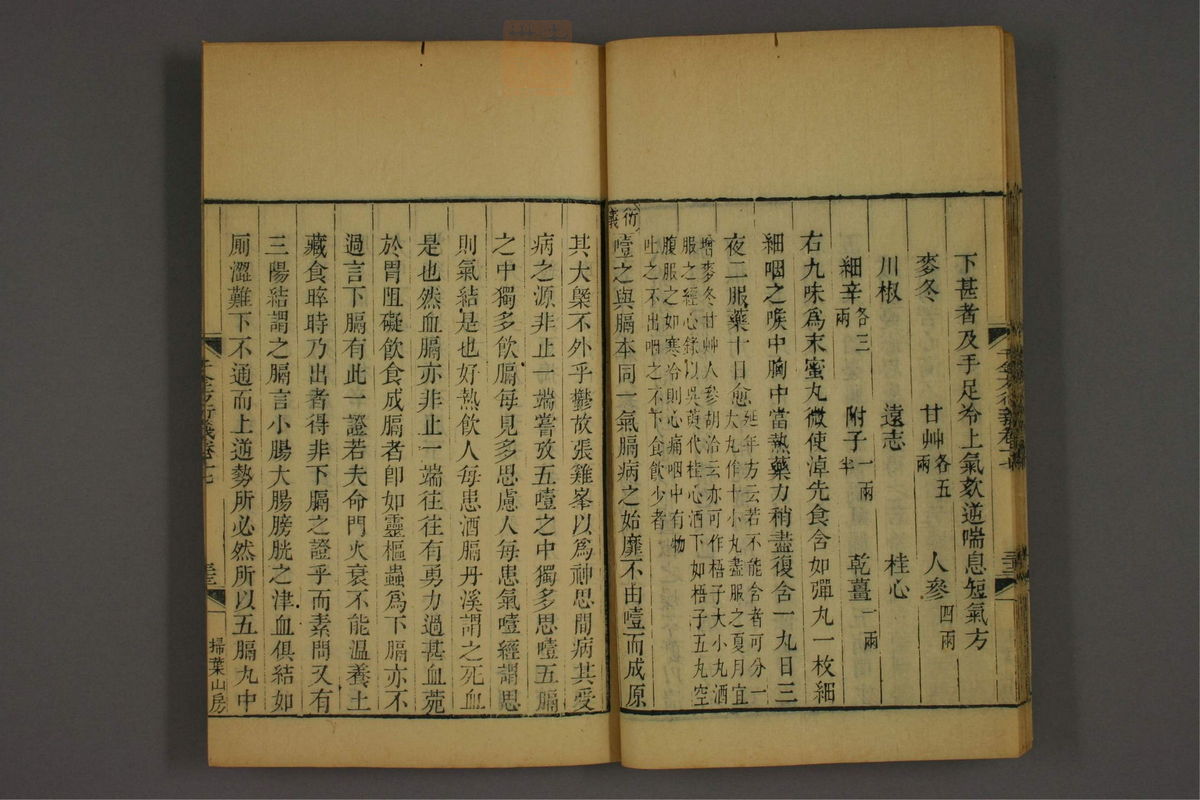 下甚者及手足冷上氣欬逆喘息短氣方
麥冬 甘艸各五兩 人參四兩
川椒 遠志 桂心
細辛各三兩 附子一兩半 乾薑一兩
右九味爲末蜜丸微使淖先食含如彈丸一枚細
細咽之喉中胸中當熱藥力稍盡復含一丸日三
夜二服藥十日愈延年方云若不能含者可分一
大丸作十小丸盡服之夏月宜
增麥冬甘艸人參胡洽云亦可作梧子大小丸酒
服之經心錄以吳萸代桂心酒下如梧子五丸空
腹服之如寒冷則心痛咽中有物
吐之不出咽之不下食飲少者
衍義
噎之與膈本同一氣膈病之始靡不由噎而成原
其大槩不外乎鬱故張雞峯以爲神思間病其受
病之源非止一端嘗攷五噎之中獨多思噎五膈
之中獨多飲膈每見多思慮人每患氣噎經謂思
則氣結是也好熱飲人每患酒膈丹溪謂之死血
是也然血膈亦非止一端往往有勇力過甚血菀
於胃阻礙飲食成膈者卽如靈樞蟲爲下膈亦不
過言下膈有此一證若夫命門火衰不能温養土
藏食晬時乃出者得非下膈之證乎而素問又有
三陽結謂之膈言小腸大腸膀胱之津血俱結如
厠澀難下不通而上逆勢所必然所以五膈丸中
千金方衍義卷十七
三三
掃葉山房